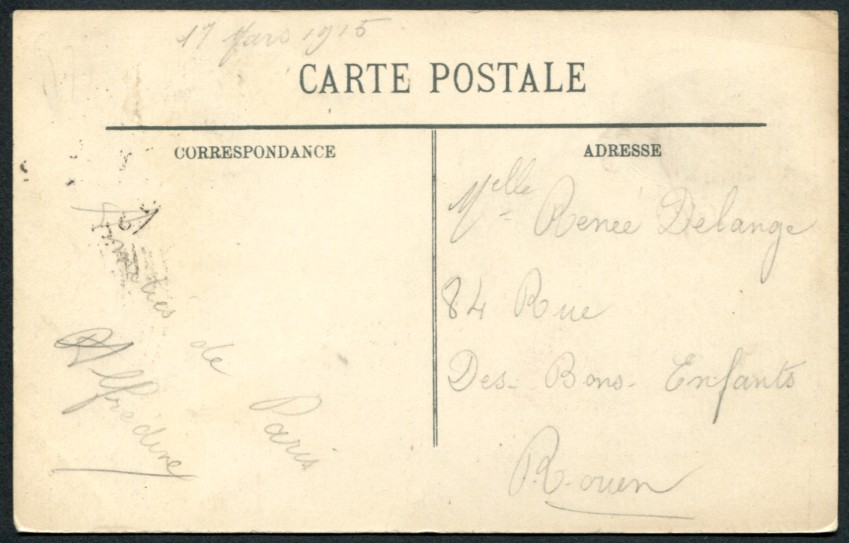 17 Mars 1915
CARTE POSTALE
CORRESPONDANCE
Amitiés de Paris
Alfrédine
ADRESSE
Melle Renée Delange
84 Rue
Des-Bons-Enfants
Rouen